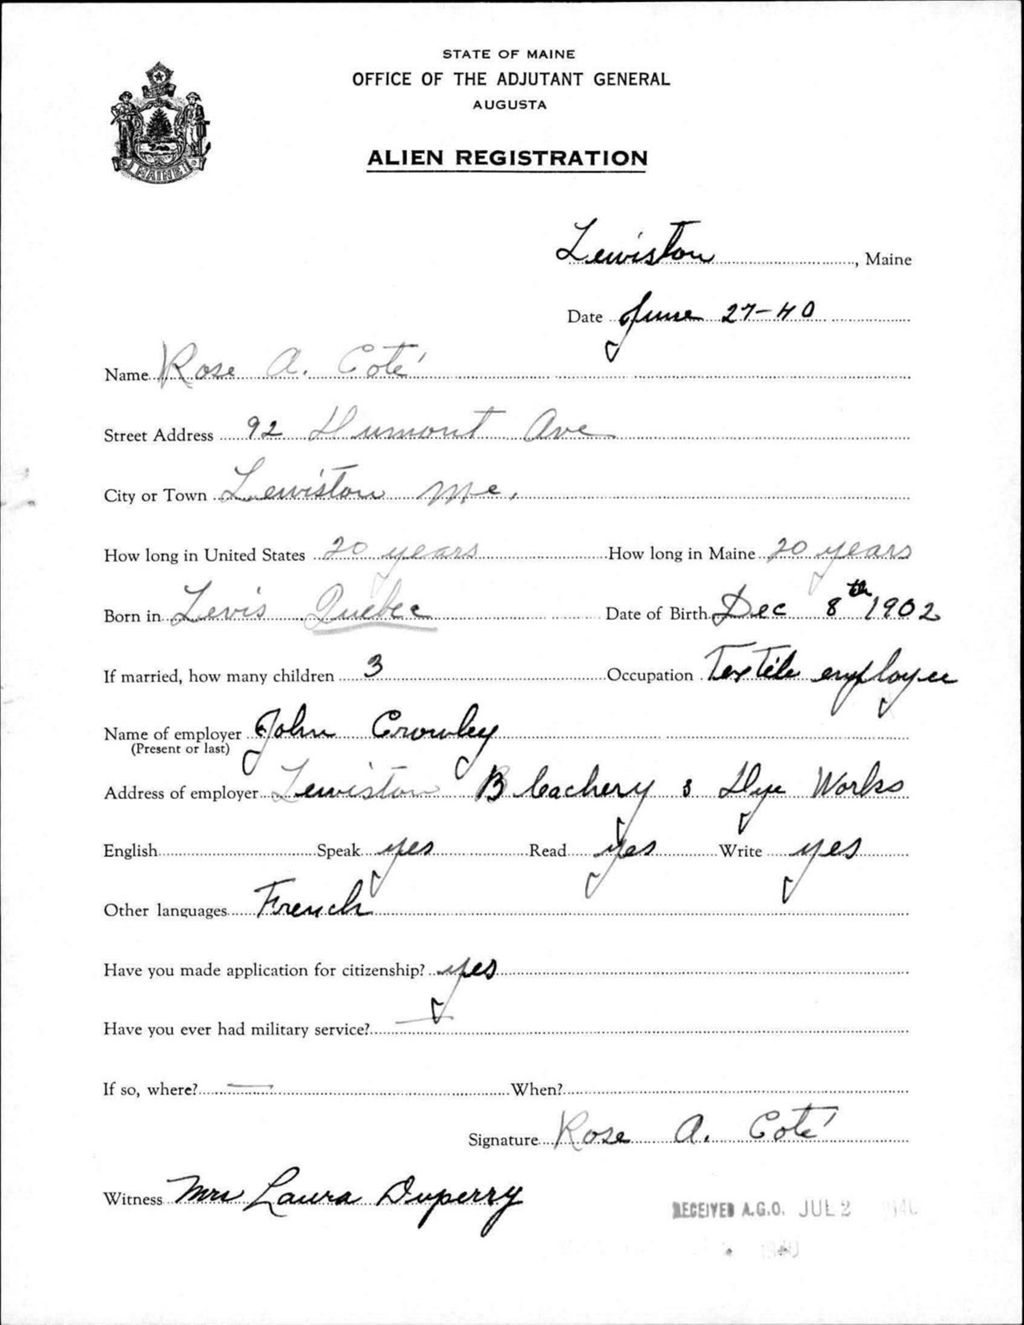 STATE OF MAINE
OFFICE OF THE ADJUTANT GENERAL
AUGUSTA
ALIEN REGISTRATION
MAINE
Lewiston, Maine
Date June 27-40
Name Rose A. Coté
Street Address 92 Dumont Ave
City or Town Lewiston Me.
How long in United States 20 years How long in Maine 20 years
Born in Levis Quebec Date of Birth Dec 8th 1902
If married, how many children 3 Occupation Textile employee
Name of employer John Crowley
(Present or last)
Address of employer Lewiston Bleachery & Dye Works
English Speak yes Read yes Write yes
Other languages French
Have you made application for citizenship? yes
Have you ever had military service? —
If so, where? — When?
Signature Rose A. Coté
Witness Mrs Laura Duperry
RECEIVED A.G.O. JUL 2 1940